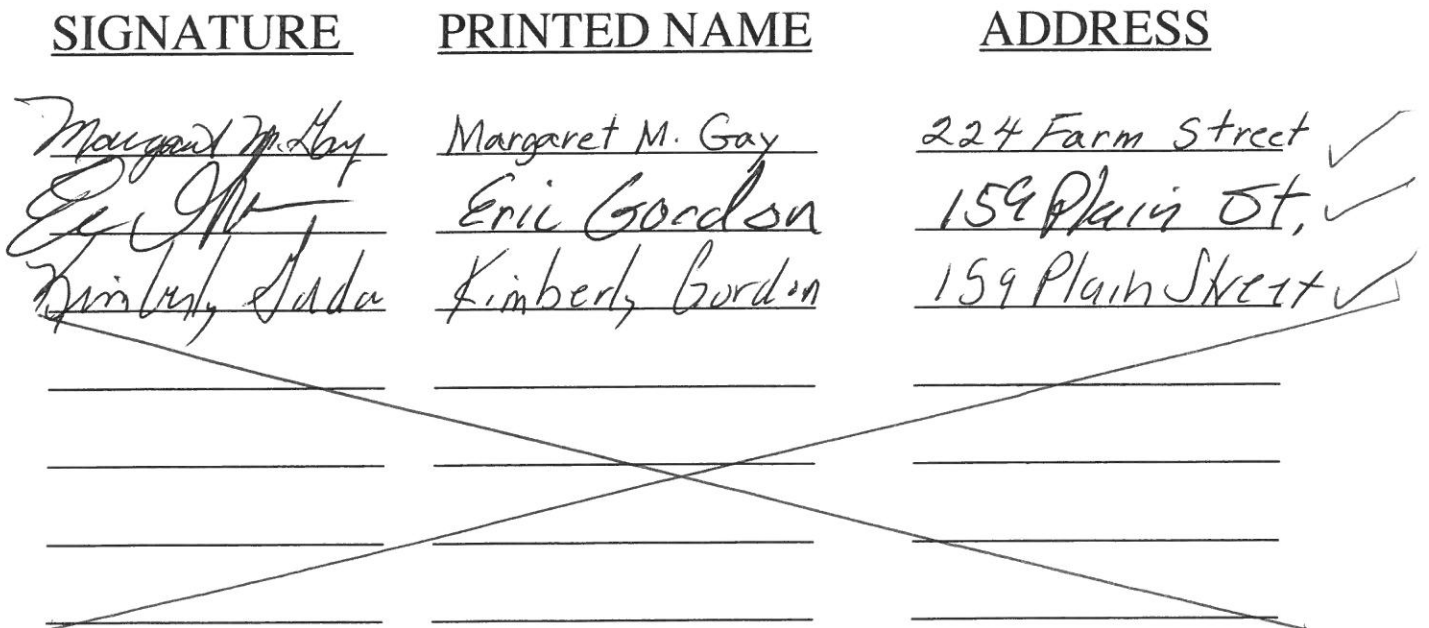 SIGNATURE PRINTED NAME ADDRESS
Margaret M. Gay Margaret M. Gay 224 Farm Street ✓
Eric Gordon 159 Plain St, ✓
Kimberly Kimberly Gordon 159 Plain Street ✓